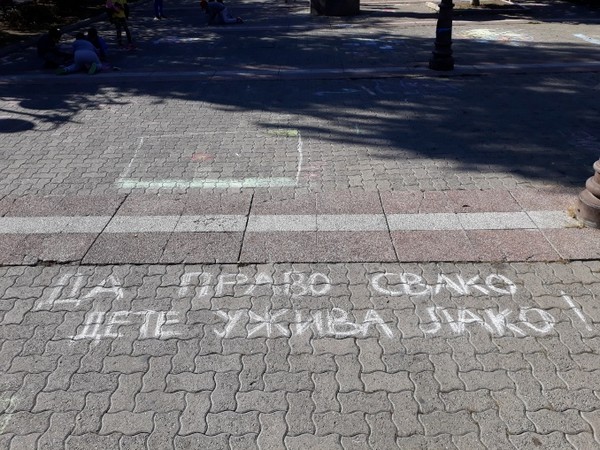 ДА ПРАВО СВАКО
ДЕТЕ УЖИВА ЛАКО!